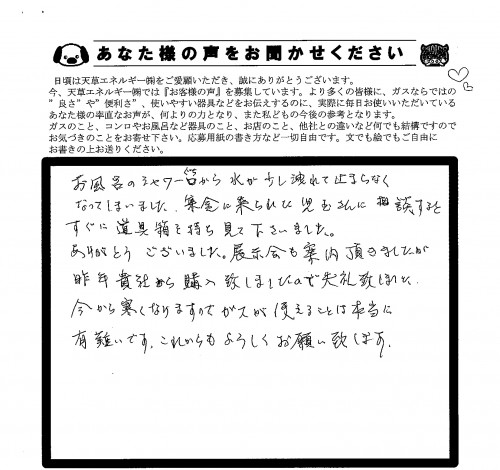 あなた様の声をお聞かせください
日頃は天草エネルギー㈱をご愛顧いただき、誠にありがとうございます。
今、天草エネルギー㈱では『お客様の声』を募集しています。より多くの皆様に、ガスならではの
"良さ"や"便利さ"、使いやすい器具などをお伝えするのに、実際に毎日お使いいただいている
あなた様の率直なお声が、何よりの力となり、また私どもの今後の参考となります。
ガスのこと、コンロやお風呂など器具のこと、お店のこと、他社との違いなど何でも結構ですので
お気づきのことをお寄せ下さい。応募用紙の書き方など一切自由です。文でも絵でもご自由に
お書きの上お送りください。
お風呂のシャワー口から水が少し洩れて止まらなく
なってしまいました。集金に来られた児玉さんに相談すると
すぐに道具箱を持ち見て下さいました。
ありがとうございました。展示会も案内頂きましたが
昨年貴社から購入致しましたので失礼致しました。
今から寒くなりますのでガスが使えることは本当に
有難いです。これからもよろしくお願い致します。